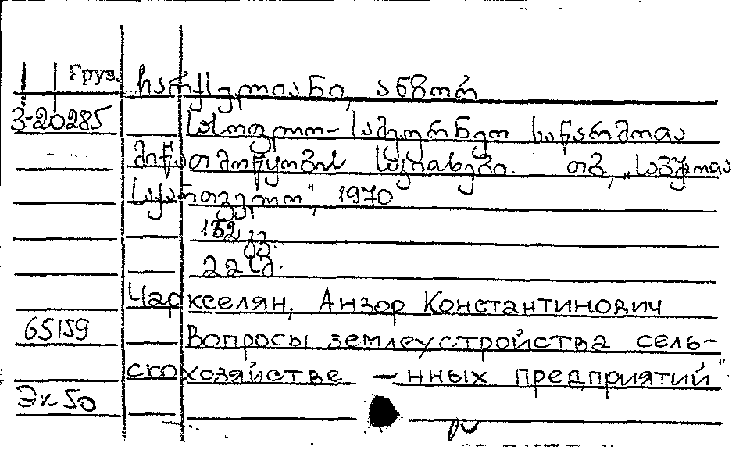 Груз. ჩარქსელიანი, ანზორ
3-20285 სასოფლო-სამეურნეო საწარმოთა
მიწათმოწყობის საკითხები. თბ., „საბჭოთა
საქართველო", 1970
132 გვ.
22 სმ.
Чаркселян, Анзор Константинович
65159 Вопросы землеустройства сель-
скохозяйстве-нных предприятий"
Эк 50